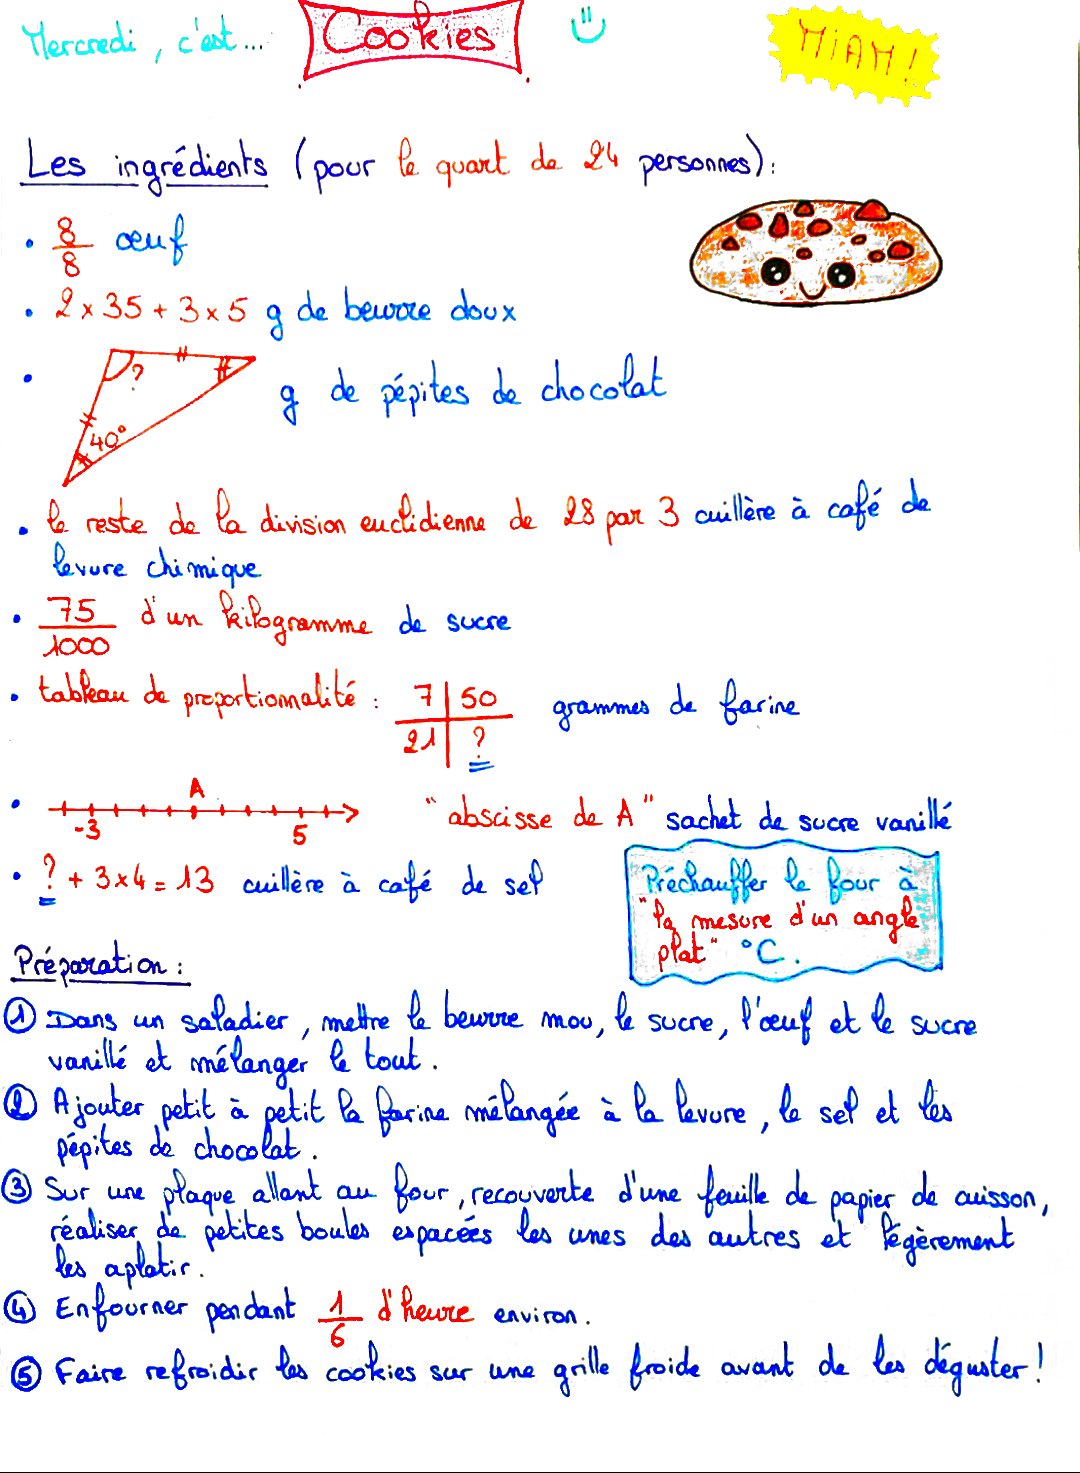 Mercredi, c'est... Cookies MIAM!
Les ingrédients (pour le quart de 24 personnes):
• 8/8 œuf
• 2 x 35 + 3 x 5 g de beurre doux
• ? 40° g de pépites de chocolat
• le reste de la division euclidienne de 28 par 3 cuillère à café de
levure chimique
• 75/1000 d'un kilogramme de sucre
• tableau de proportionnalité : 7 | 50 grammes de farine
21 | ?
• A "abscisse de A" sachet de sucre vanillé
-3 5
• ? + 3x4 = 13 cuillère à café de sel
Préchauffer le four à
"la mesure d'un angle
plat" °C.
Préparation :
① Dans un saladier, mettre le beurre mou, le sucre, l'œuf et le sucre
vanillé et mélanger le tout.
② Ajouter petit à petit la farine mélangée à la levure, le sel et les
pépites de chocolat.
③ Sur une plaque allant au four, recouverte d'une feuille de papier de cuisson,
réaliser de petites boules espacées les unes des autres et légèrement
les aplatir.
④ Enfourner pendant 1/6 d'heure environ.
⑤ Faire refroidir les cookies sur une grille froide avant de les déguster!